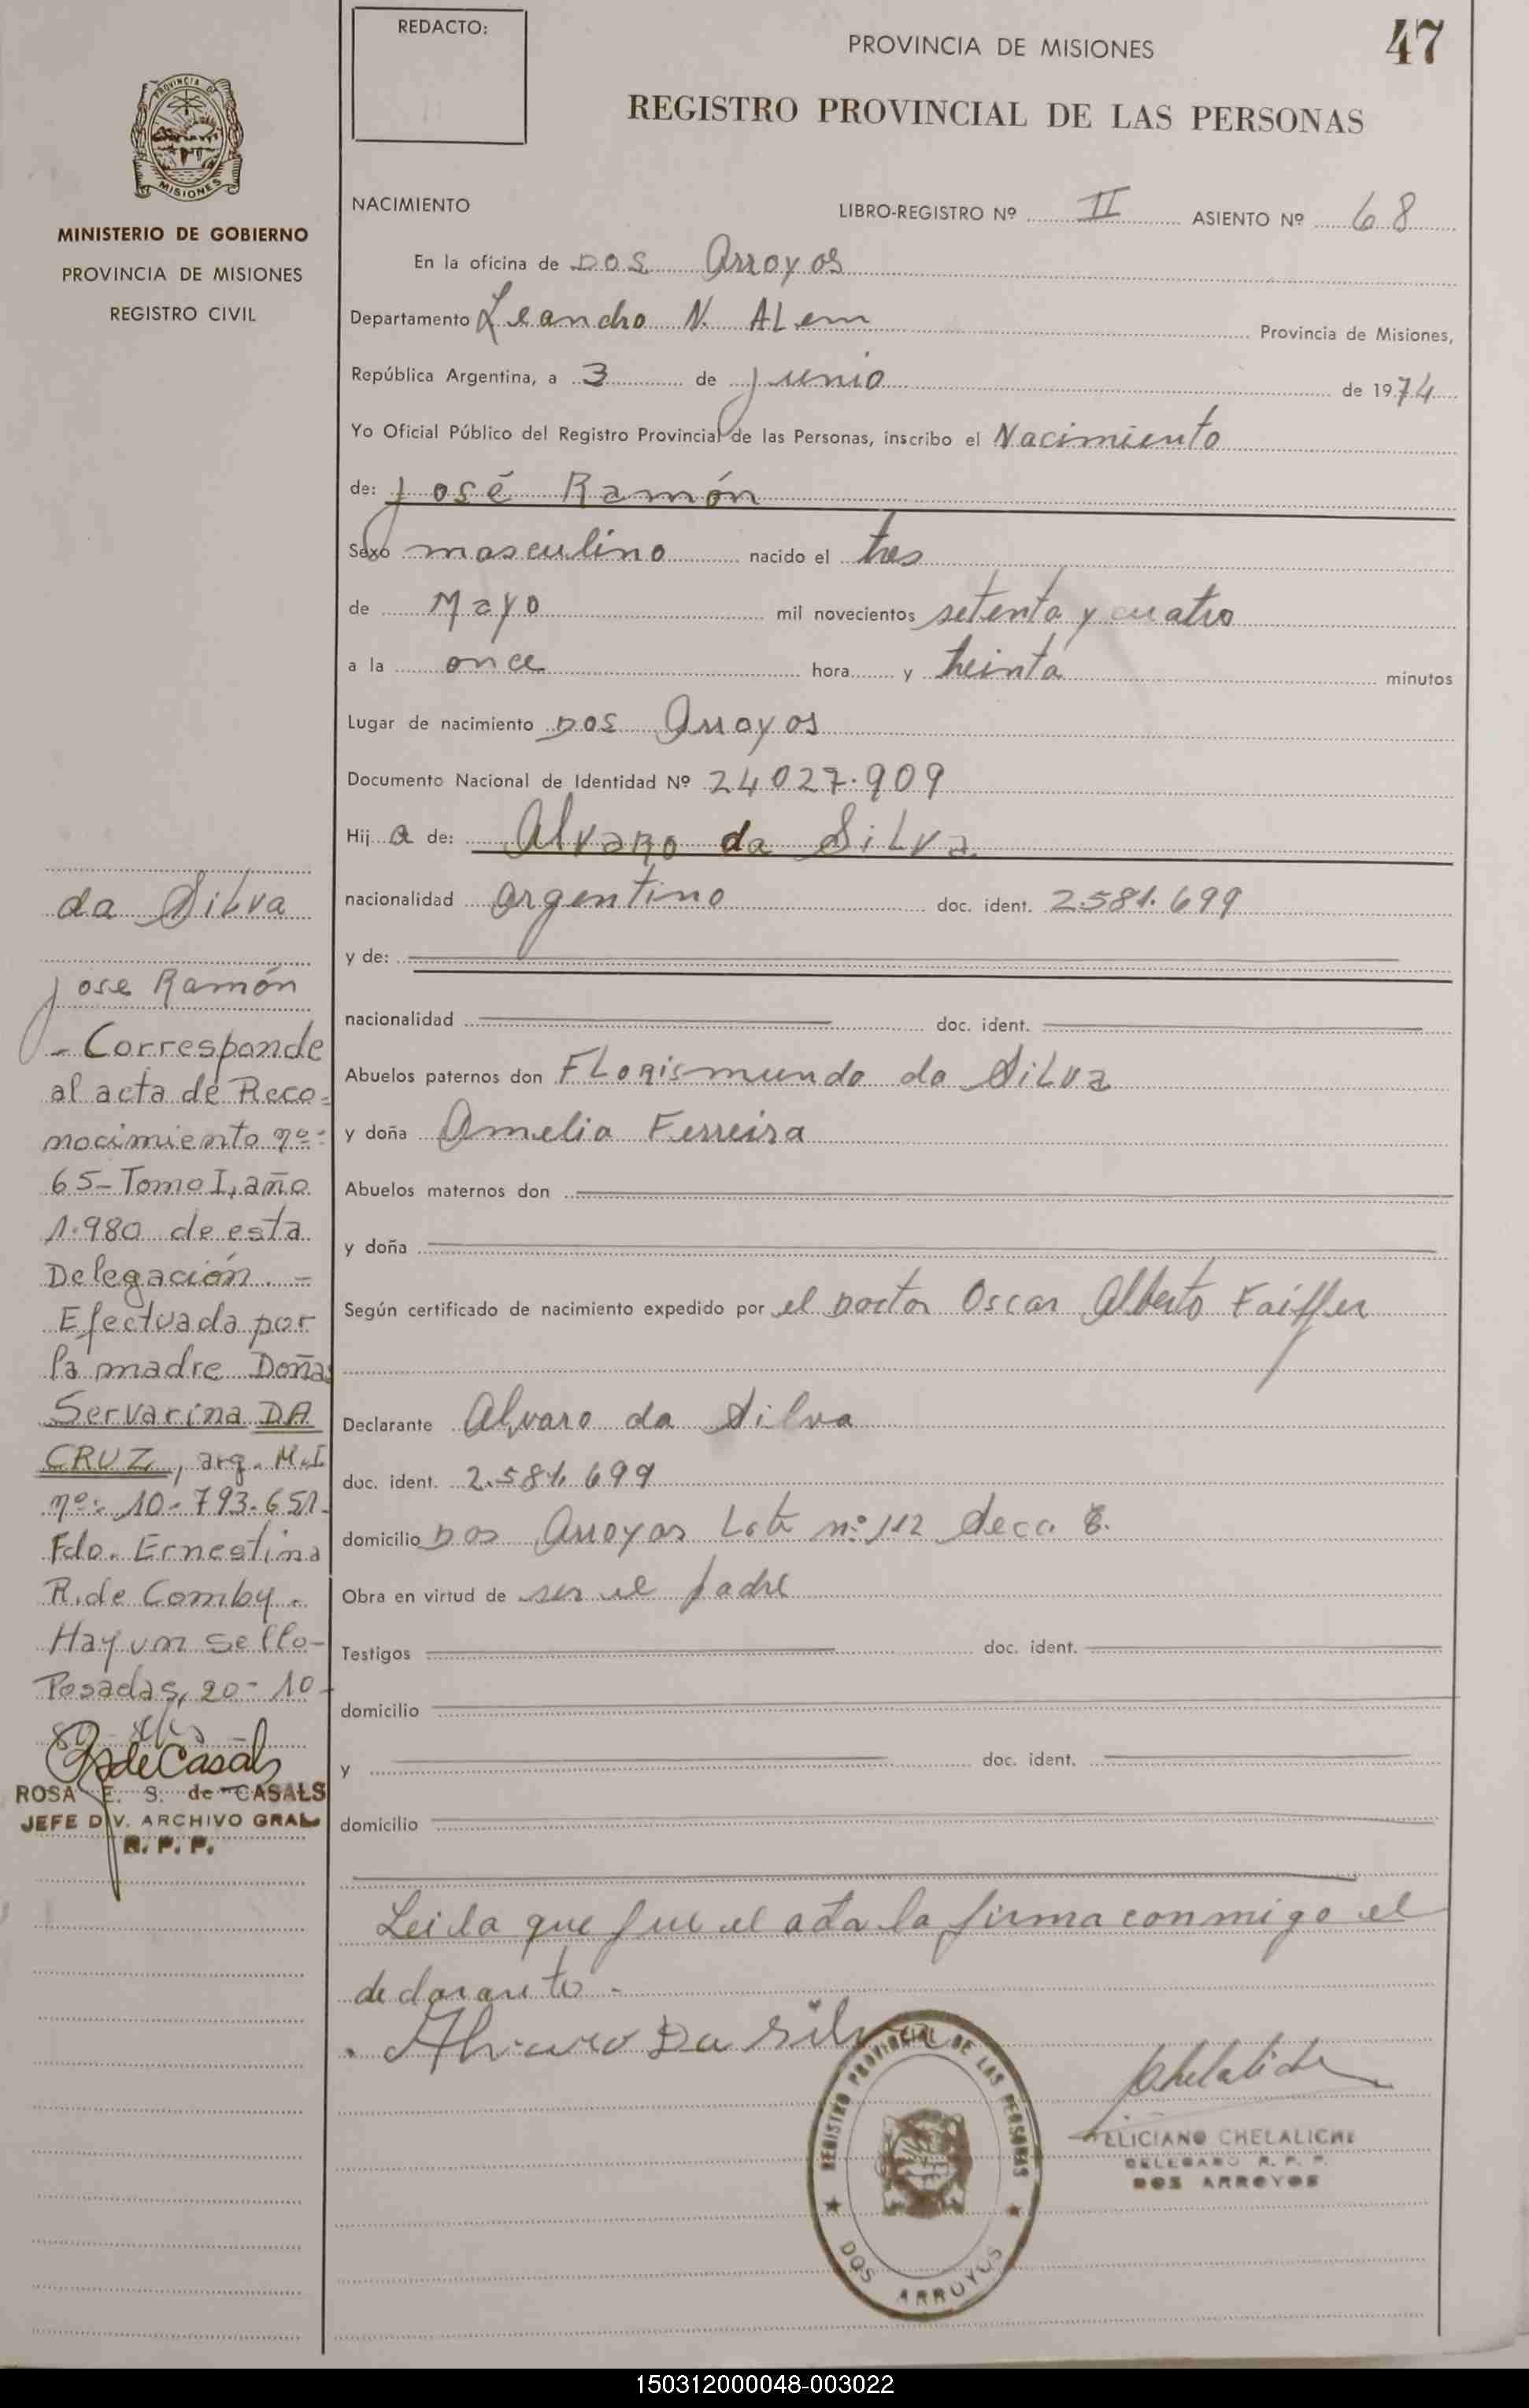 REDACTO:
PROVINCIA DE MISIONES
47
REGISTRO PROVINCIAL DE LAS PERSONAS
PROVINCIA DE
MISIONES
MINISTERIO DE GOBIERNO
PROVINCIA DE MISIONES
REGISTRO CIVIL
NACIMIENTO
LIBRO-REGISTRO Nº II ASIENTO Nº 68
En la oficina de DOS Arroyos
Departamento Leandro N. ALem Provincia de Misiones,
República Argentina, a 3 de junio de 1974
Yo Oficial Público del Registro Provincial de las Personas, inscribo el Nacimiento
de: José Ramón
Sexo masculino nacido el tres
de Mayo mil novecientos setenta y cuatro
a la once hora y treinta minutos
Lugar de nacimiento DOS Arroyos
Documento Nacional de Identidad Nº 24027.909
Hij a de: Alvaro da SiLva
nacionalidad argentino doc. ident. 2.581.699
y de:
nacionalidad doc. ident.
Abuelos paternos don FLorismundo da SiLva
y doña Amelia Ferreira
Abuelos maternos don
y doña
Según certificado de nacimiento expedido por el Doctor Oscar Alberto Faiffer
Declarante Alvaro da Silva
doc. ident. 2.581.699
domicilio Dos Arroyos Lote nº 112 Secc. 8.
Obra en virtud de ser el padre
Testigos doc. ident.
domicilio
y doc. ident.
domicilio
Leida que fue el acta la firma conmigo el
declarante.
Alvaro Da Silva
REGISTRO PROVINCIAL DE LAS PERSONAS
DOS ARROYOS
Chelaliche
FELICIANO CHELALICHE
DELEGADO R. P. P.
DOS ARROYOS
da Silva
Jose Ramón
- Corresponde
al acta de Reco-
nocimiento nº:
65- Tomo I, año
1.980 de esta
Delegación. -
Efectuada por
la madre Doña
Servarina DA
CRUZ, arg. M.I
nº: 10-793.651-
Fdo. Ernestina
R. de Comby.
Hay un sello-
Posadas, 20-10-
R S de Casals
ROSA E. S. de CASALS
JEFE DIV. ARCHIVO GRAL
R. P. P.
150312000048-003022